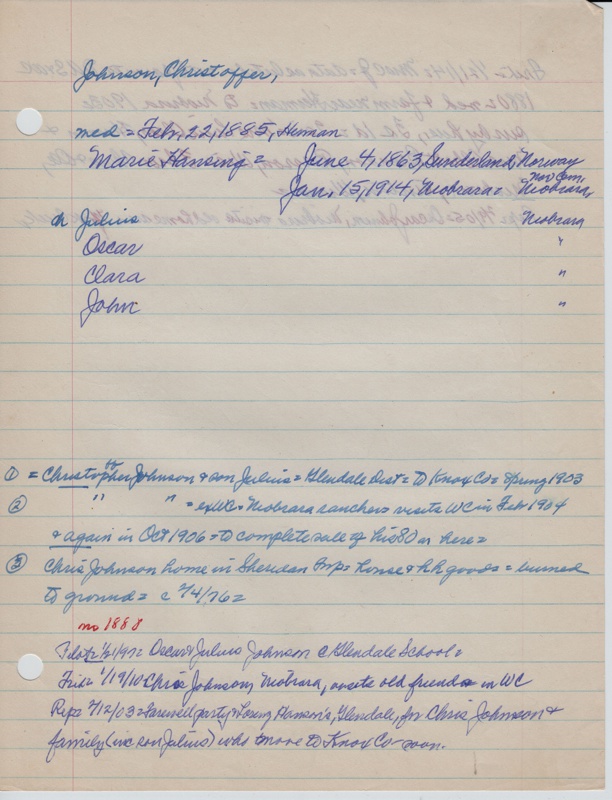 Johnson, Christoffer,
med = Feb, 22, 1885, Herman
"Marie Hansing" = June 4, 1863, Sunderland, Norway
Jan, 15, 1914, Niobrara = Nor Cem, Niobrara,
ch Julius Niobrara
Oscar "
Clara "
John "
① = Christopher Johnson & son Julius = Glendale Dist = to Knox Co = Spring 1903
ff
② " " = ex WC = Niobrara rancher visits WC in Feb 1904
& again in Oct 1906 = to complete sale of his 80 a here =
③ Chris Johnson home in Sheridan Twp = house & hh goods = burned
to ground = c 2/4/96 =
no 1888
Pilot = 1/21/97 = Oscar & Julius Johnson @ Glendale School =
Trib = 1/19/10 = Chris Johnson, Niobrara, visits old friends in WC
Rep = 2/12/03 = Farewell party @ Hanson's, Glendale, for Chris Johnson &
family (inc son Julius) who move to Knox Co soon.